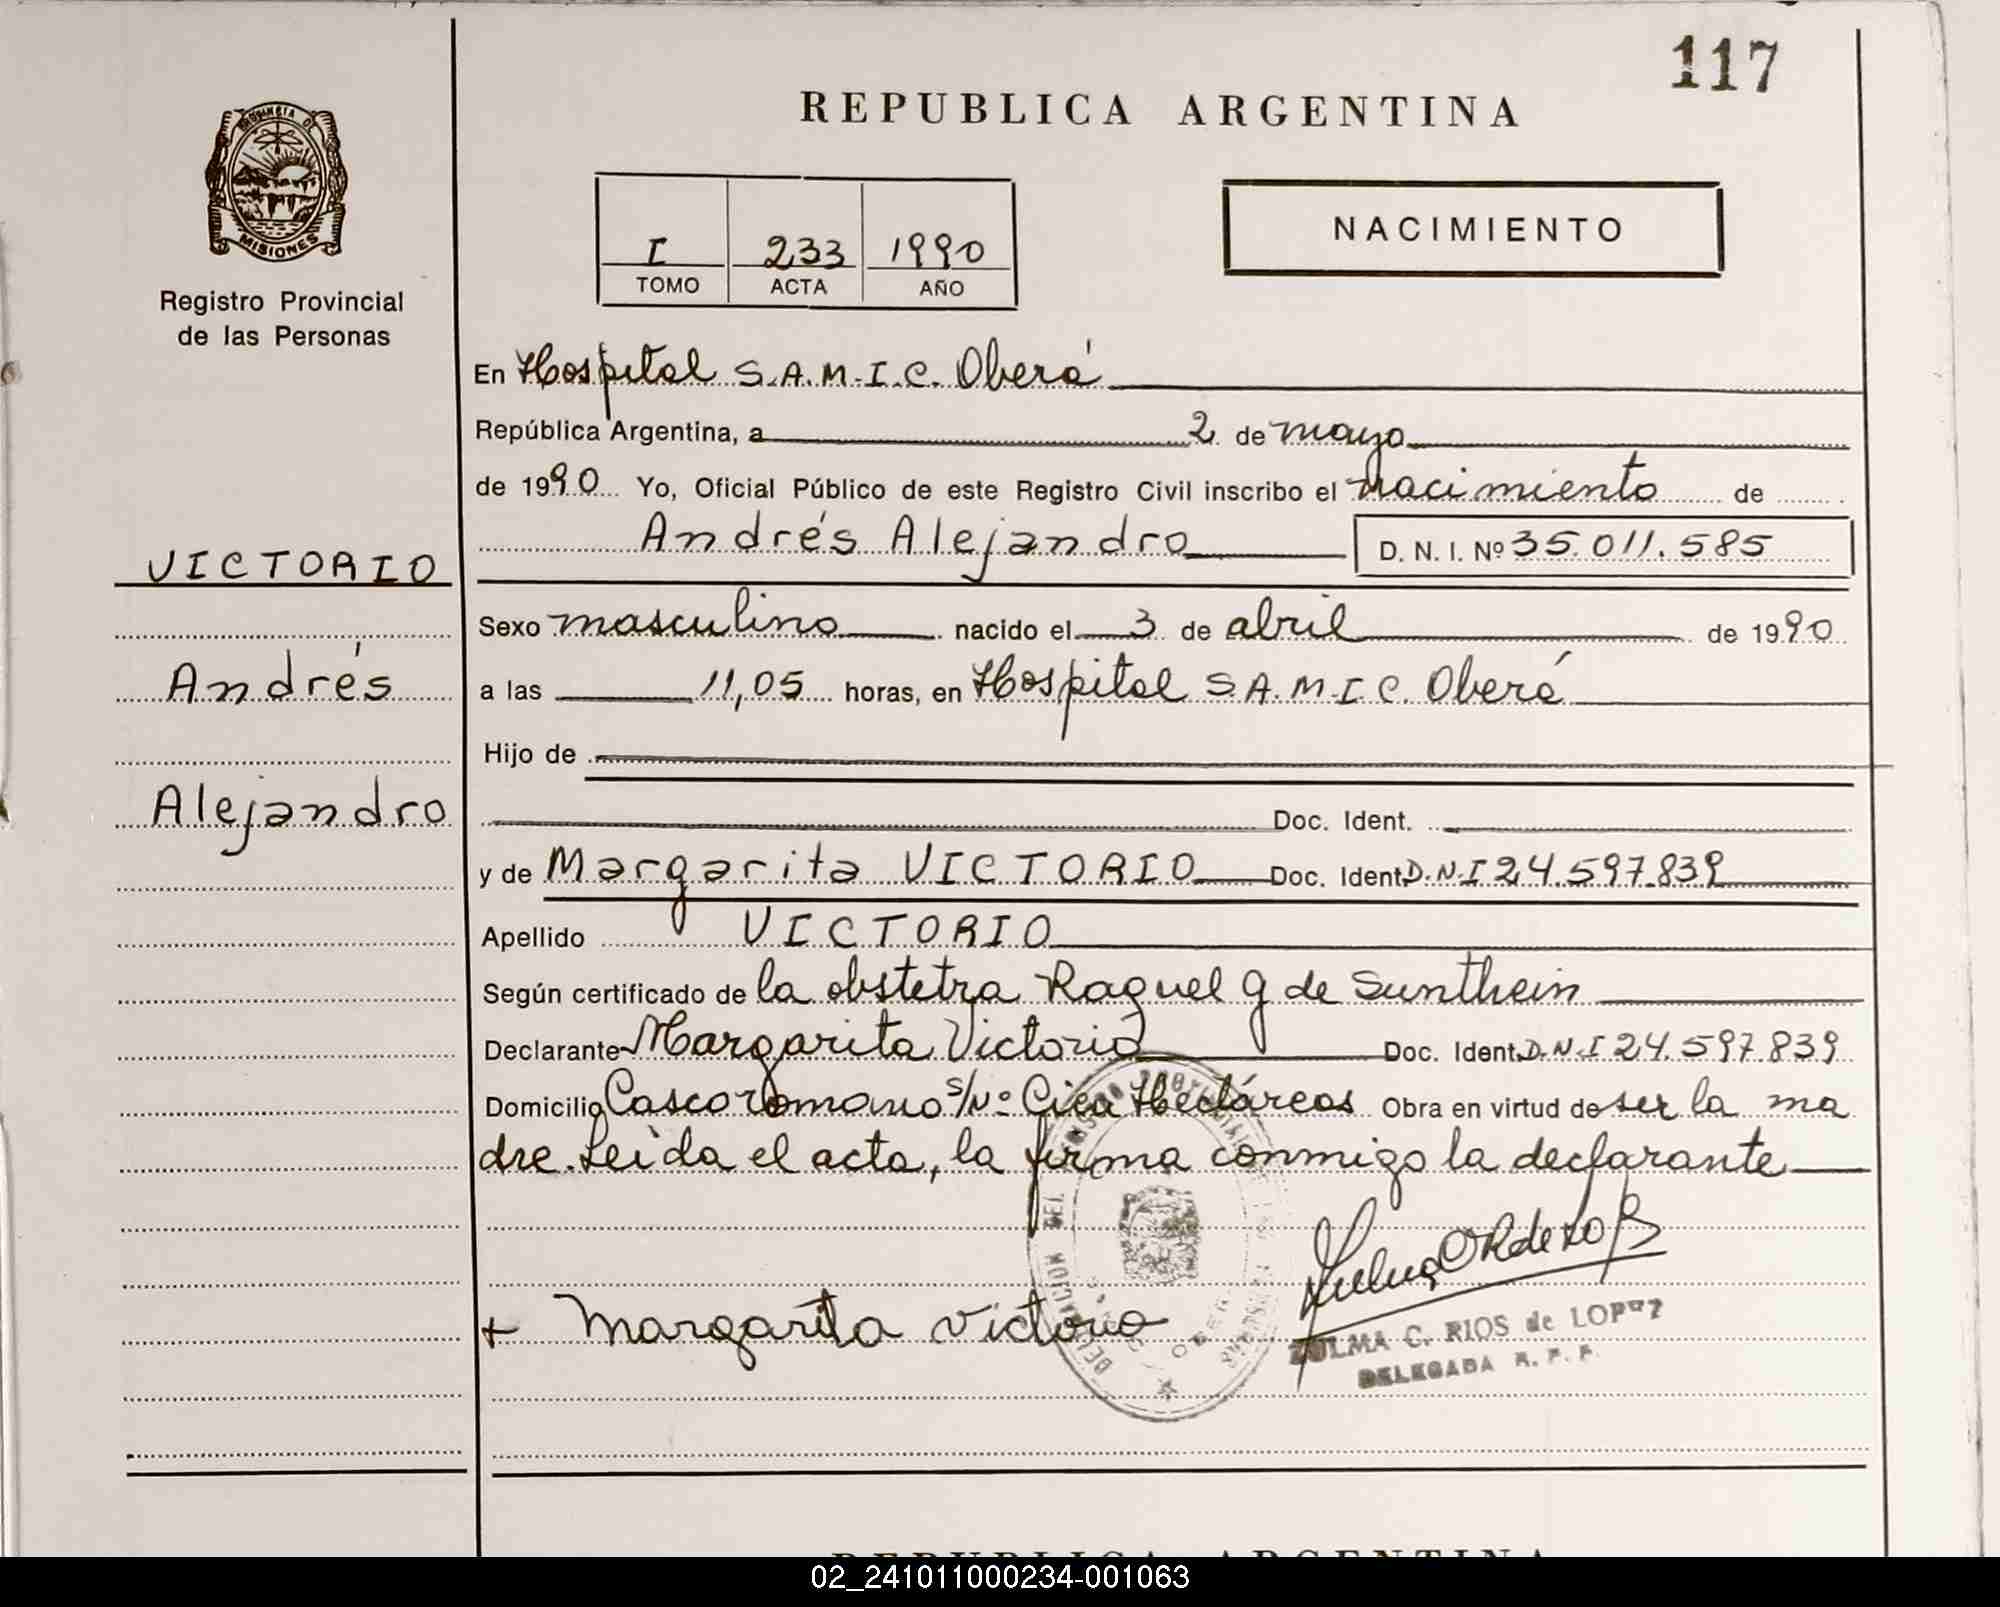 117
REPUBLICA ARGENTINA
PROVINCIA DE
MISIONES
Registro Provincial
de las Personas
I 233 1990
TOMO ACTA AÑO
NACIMIENTO
En Hospital S.A.M.I.C. Oberá
República Argentina, a 2 de mayo
de 1990 Yo, Oficial Público de este Registro Civil inscribo el nacimiento de
Andrés Alejandro D. N. I. Nº 35.011.585
VICTORIO
Andrés
Alejandro
Sexo masculino nacido el 3 de abril de 1990
a las 11,05 horas, en Hospital S.A.M.I.C. Oberá
Hijo de
Doc. Ident.
y de Margarita VICTORIO Doc. Ident. D.N.I 24.597.839
Apellido VICTORIO
Según certificado de la obstetra Raquel G de Sunthein
Declarante Margarita Victorio Doc. Ident. D.N.I 24.597.839
Domicilio Casco romano s/Nº Cien Hectáreas Obra en virtud de ser la ma
dre. Leída el acta, la firma conmigo la declarante
+ Margarita Victorio
ZULMA C. RIOS de LOPEZ
DELEGADA R. P. P.
REPUBLICA ARGENTINA
02_241011000234-001063